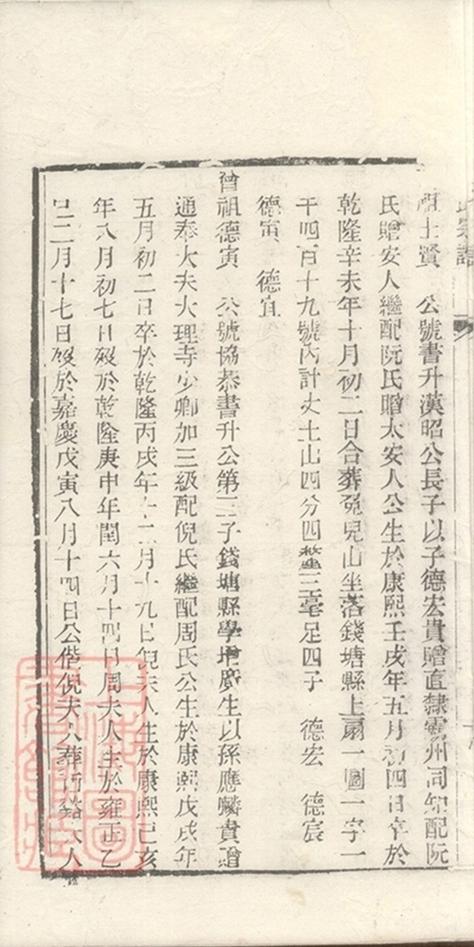 祖士賢 公號書升漢昭公長子以子德宏貴贈直隸霸州同知配阮
氏贈安人繼配阮氏贈太安人公生於康熙壬戌年五月初四日卒於
乾隆辛未年十月初二日合葬兔兒山坐落錢塘縣上扇一圖一字一
千四百十九號內計丈土山四分四釐三毫足四子 德宏 德宸
德寅 德宜
曾祖德寅 公號協恭書升公第三子錢塘縣學增廣生以孫應麟貴贈
通奉大夫大理寺少卿加三級配倪氏繼配周氏公生於康熙戊戌年
五月初二日卒於乾隆丙戌年十二月十九日倪夫人生於康熙己亥
年八月初七日歿於乾隆庚申年閏六月十四日周夫人生於雍正乙
巳二月十七日歿於嘉慶戊寅八月十四日公偕倪夫人葬